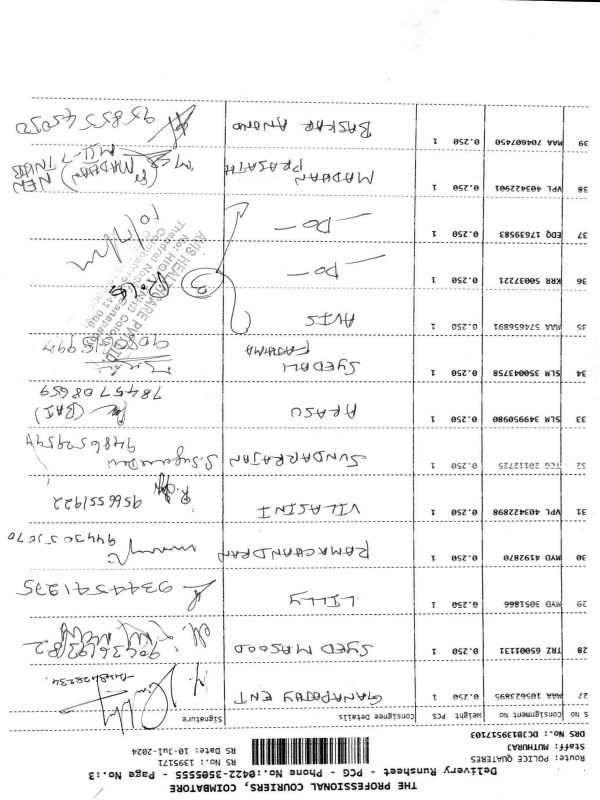 THE PROFESSIONAL COURIERS, COIMBATORE
Delivery Runsheet - PCG - Phone No.:0422-3505555 - Page No.:3
Route: POLICE QUATERES
Staff: MUTHURAJ
DRS No.: DC30139537103
RS No.: 1395171
RS Date: 10-Jul-2024
S No Consignment No Weight PCS Consignee Details Signature
27 MAA 105623895 0.250 1 GANAPATHY ENT
28 TRZ 65001131 0.250 1 SYED MASOOD
29 MYD 3051866 0.250 1 LILLY 9344541275
30 MYD 4192870 0.250 1 RAMACHANDRAN
31 VPL 403422898 0.250 1 VILASINI 9566551922
32 TCG 20112725 0.250 1 SUNDARRAJAN S. Suganya Devi
33 SLM 349950980 0.250 1 ARASU (BAI)
7845708659
34 SLM 350043758 0.250 1 SYED ALI
FATHIMA
35 MAA 574656891 0.250 1 AVIS
36 KRR 50037221 0.250 1 — DO — 3
37 EDQ 17639583 0.250 1 — DO —
AVIS HEALTHCARE PVT. LTD.
38 VPL 403422901 0.250 1 MADHAN
PRASATH
39 MAA 704607450 0.250 1 BASKAR ANAND 9585545050